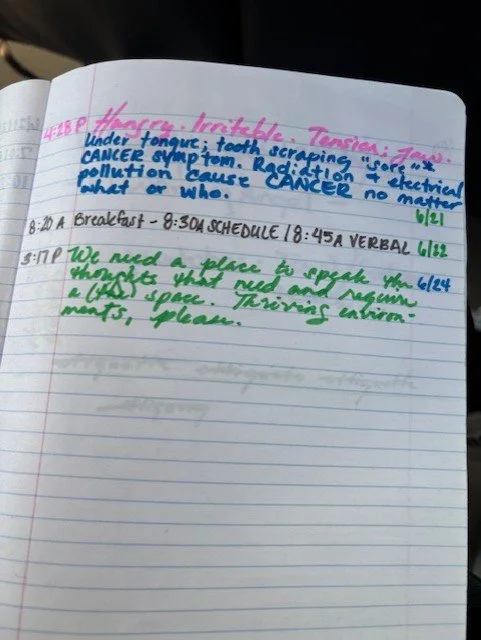 4:28 P Hangry. Irritable. Tension; jaw.
Under tongue; tooth scraping "sore"*
CANCER symptom. Radiation + electrical
pollution cause CANCER no matter
what or who. 6/21
8:20 A Breakfast - 8:30A SCHEDULE / 8:45A VERBAL 6/22
3:17 P We need a place to speak the 6/24
thoughts that need and require
a (the) space. Thriving environ-
ments, please.